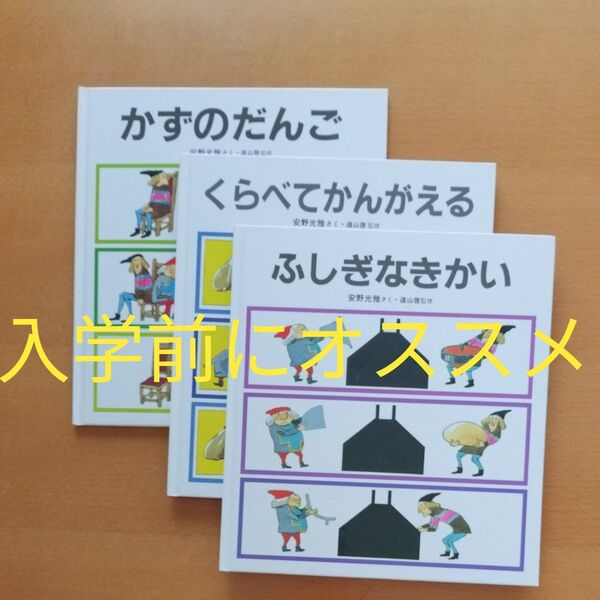 かずのだんご
安野光雅さく・遠山啓監作
くらべてかんがえる
安野光雅さく・遠山啓監作
ふしぎなきかい
安野光雅さく・遠山啓監作
入学前にオススメ